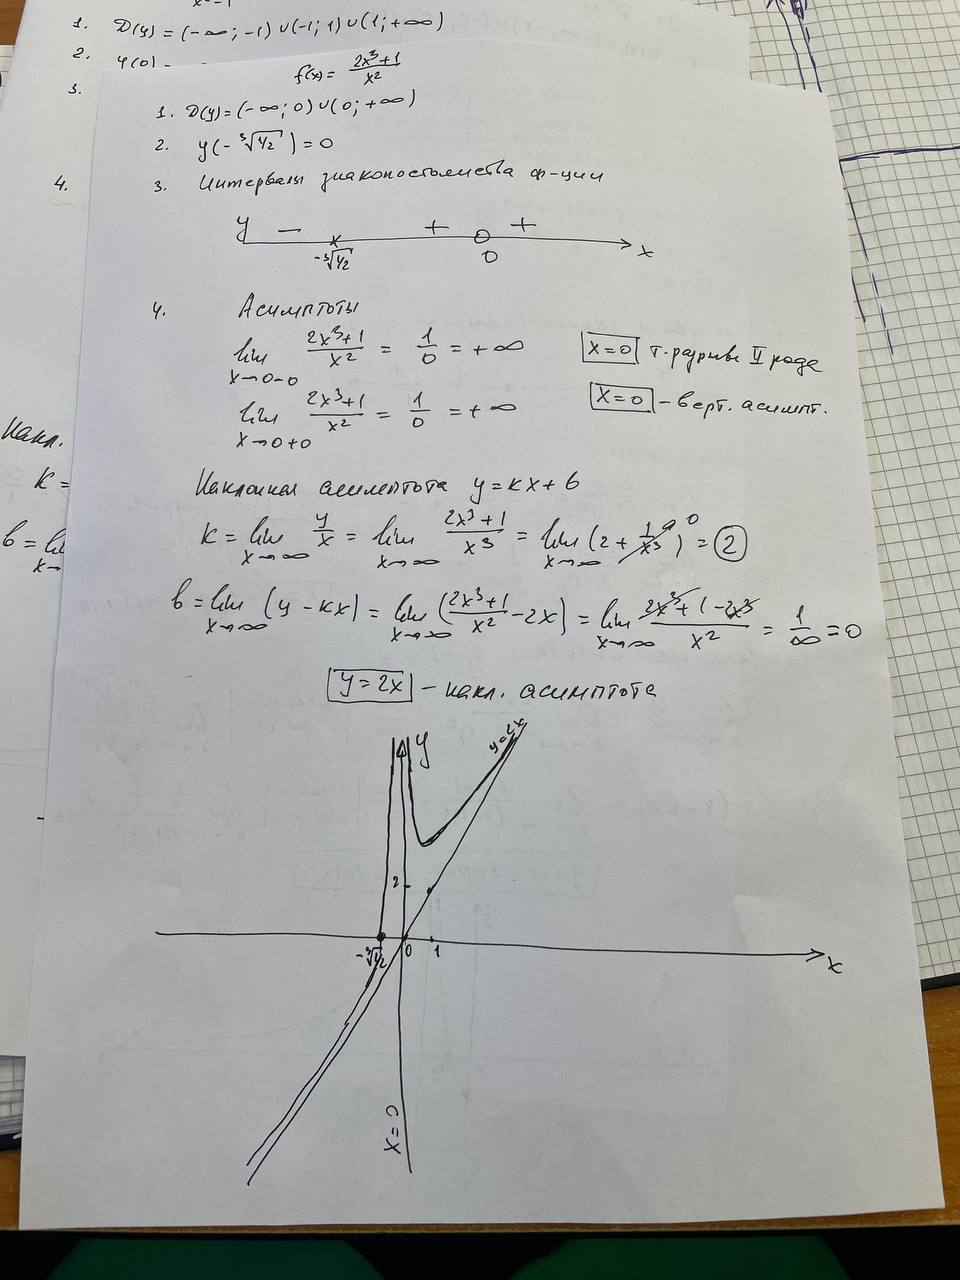 1. D(y) = (-∞; -1) ∪ (-1; 1) ∪ (1; +∞)
2. y(0) -
3.
4.
Накл.
K =
b = lim
x→
f(x) = (2x³+1)/x²
1. D(y) = (-∞; 0) ∪ (0; +∞)
2. y(-∛1/2) = 0
3. Интервалы знакопостоянства ф-ции
y − + + x
-∛1/2 0
4. Асимптоты
lim x→0-0 (2x³+1)/x² = 1/0 = +∞ x=0 т. разрыва II рода
lim x→0+0 (2x³+1)/x² = 1/0 = +∞ x=0 - верт. асимпт.
Наклонная асимптота y = kx + b
K = lim x→∞ y/x = lim x→∞ (2x³+1)/x³ = lim x→∞ (2 + 1/x³ 0) = 2
b = lim x→∞ (y - kx) = lim x→∞ ((2x³+1)/x² - 2x) = lim x→∞ (2x³+1-2x³)/x² = 1/∞ = 0
y = 2x - накл. асимптота
y y=2x
2
-∛1/2 0 1 x
x=0